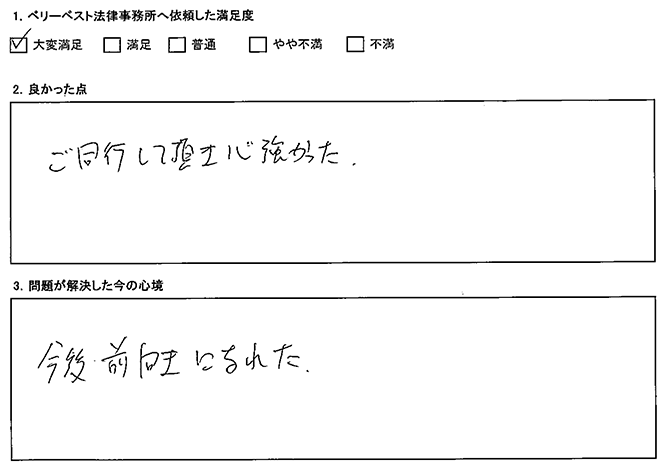 1. ベリーベスト法律事務所へ依頼した満足度
☑ 大変満足 □ 満足 □ 普通 □ やや不満 □ 不満
2. 良かった点
ご同行して頂き心強かった.
3. 問題が解決した今の心境
今後前向きになれた.